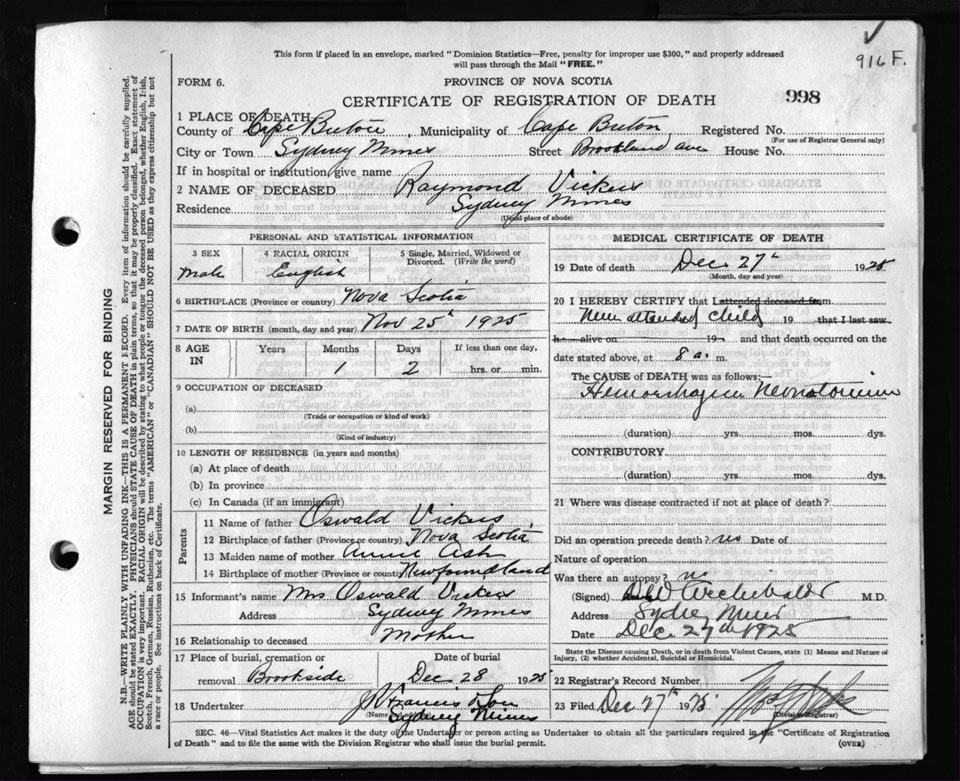 916 F.
This form if placed in an envelope, marked "Dominion Statistics—Free, penalty for improper use $300," and properly addressed
will pass through the Mail "FREE."
FORM 6.
PROVINCE OF NOVA SCOTIA
998
CERTIFICATE OF REGISTRATION OF DEATH
MARGIN RESERVED FOR BINDING
N.B.—WRITE PLAINLY WITH UNFADING INK—THIS IS A PERMANENT RECORD. Every item of information should be carefully supplied.
AGE should be stated EXACTLY. PHYSICIANS should STATE CAUSE OF DEATH in plain terms, so that it may be properly classified. Exact statement of
OCCUPATION is very important. RACIAL ORIGIN will be described by stating to what people or tongue the deceased person belonged, whether English, Irish,
Scotch, French, German, Russian, Ruthenian, etc. The terms "AMERICAN" or "CANADIAN" SHOULD NOT BE USED as they express citizenship but not
a race or people. See instructions on back of Certificate.
1 PLACE OF DEATH
County of Cape Breton, Municipality of Cape Breton Registered No.
(For use of Registrar General only)
City or Town Sydney Mines Street Brookland ave House No.
If in hospital or institution, give name
2 NAME OF DECEASED Raymond Vickers
Residence Sydney Mines
(Usual place of abode)
PERSONAL AND STATISTICAL INFORMATION
3 SEX 4 RACIAL ORIGIN 5 Single, Married, Widowed or
Divorced. (Write the word)
Male English
6 BIRTHPLACE (Province or country) Nova Scotia
7 DATE OF BIRTH (month, day and year) Nov 25th 1925
8 AGE IN Years Months Days If less than one day,
1 2 hrs. or min.
9 OCCUPATION OF DECEASED
(a)
(Trade or occupation or kind of work)
(b)
(Kind of industry)
10 LENGTH OF RESIDENCE (in years and months)
(a) At place of death
(b) In province
(c) In Canada (if an immigrant)
Parents
11 Name of father Oswald Vickers
12 Birthplace of father (Province or country) Nova Scotia
13 Maiden name of mother Annie Ash
14 Birthplace of mother (Province or country) Newfoundland
15 Informant's name Mrs Oswald Vickers
Address Sydney Mines
16 Relationship to deceased Mother
17 Place of burial, cremation or Date of burial
removal Brookside Dec 28 1925
18 Undertaker J R Francis & Son
(Name
Sydney Mines
MEDICAL CERTIFICATE OF DEATH
19 Date of death Dec 27th 1925
(Month, day and year)
20 I HEREBY CERTIFY that I attended deceased from
Never attended child 19 that I last saw
h alive on 19 and that death occurred on
date stated above, at 8 a. m.
The CAUSE of DEATH was as follows:—
Hemorrhagica Neonatorium
(duration) yrs. mos. dys.
CONTRIBUTORY
(duration) yrs. mos. dys.
21 Where was disease contracted if not at place of death?
Did an operation precede death? no Date of
Nature of operation
Was there an autopsy? no
(Signed) Archibald M.D.
Address Sydney Mines
Date Dec 27th 1925
State the Disease causing Death, or in death from Violent Causes, state (1) Means and Nature of
Injury, (2) whether Accidental, Suicidal or Homicidal.
22 Registrar's Record Number
23 Filed Dec 27th 1925
(Division Registrar)
SEC. 46—Vital Statistics Act makes it the duty of the Undertaker or person acting as Undertaker to obtain all the particulars required in the "Certificate of Registration
of Death" and to file the same with the Division Registrar who shall issue the burial permit.
(OVER)